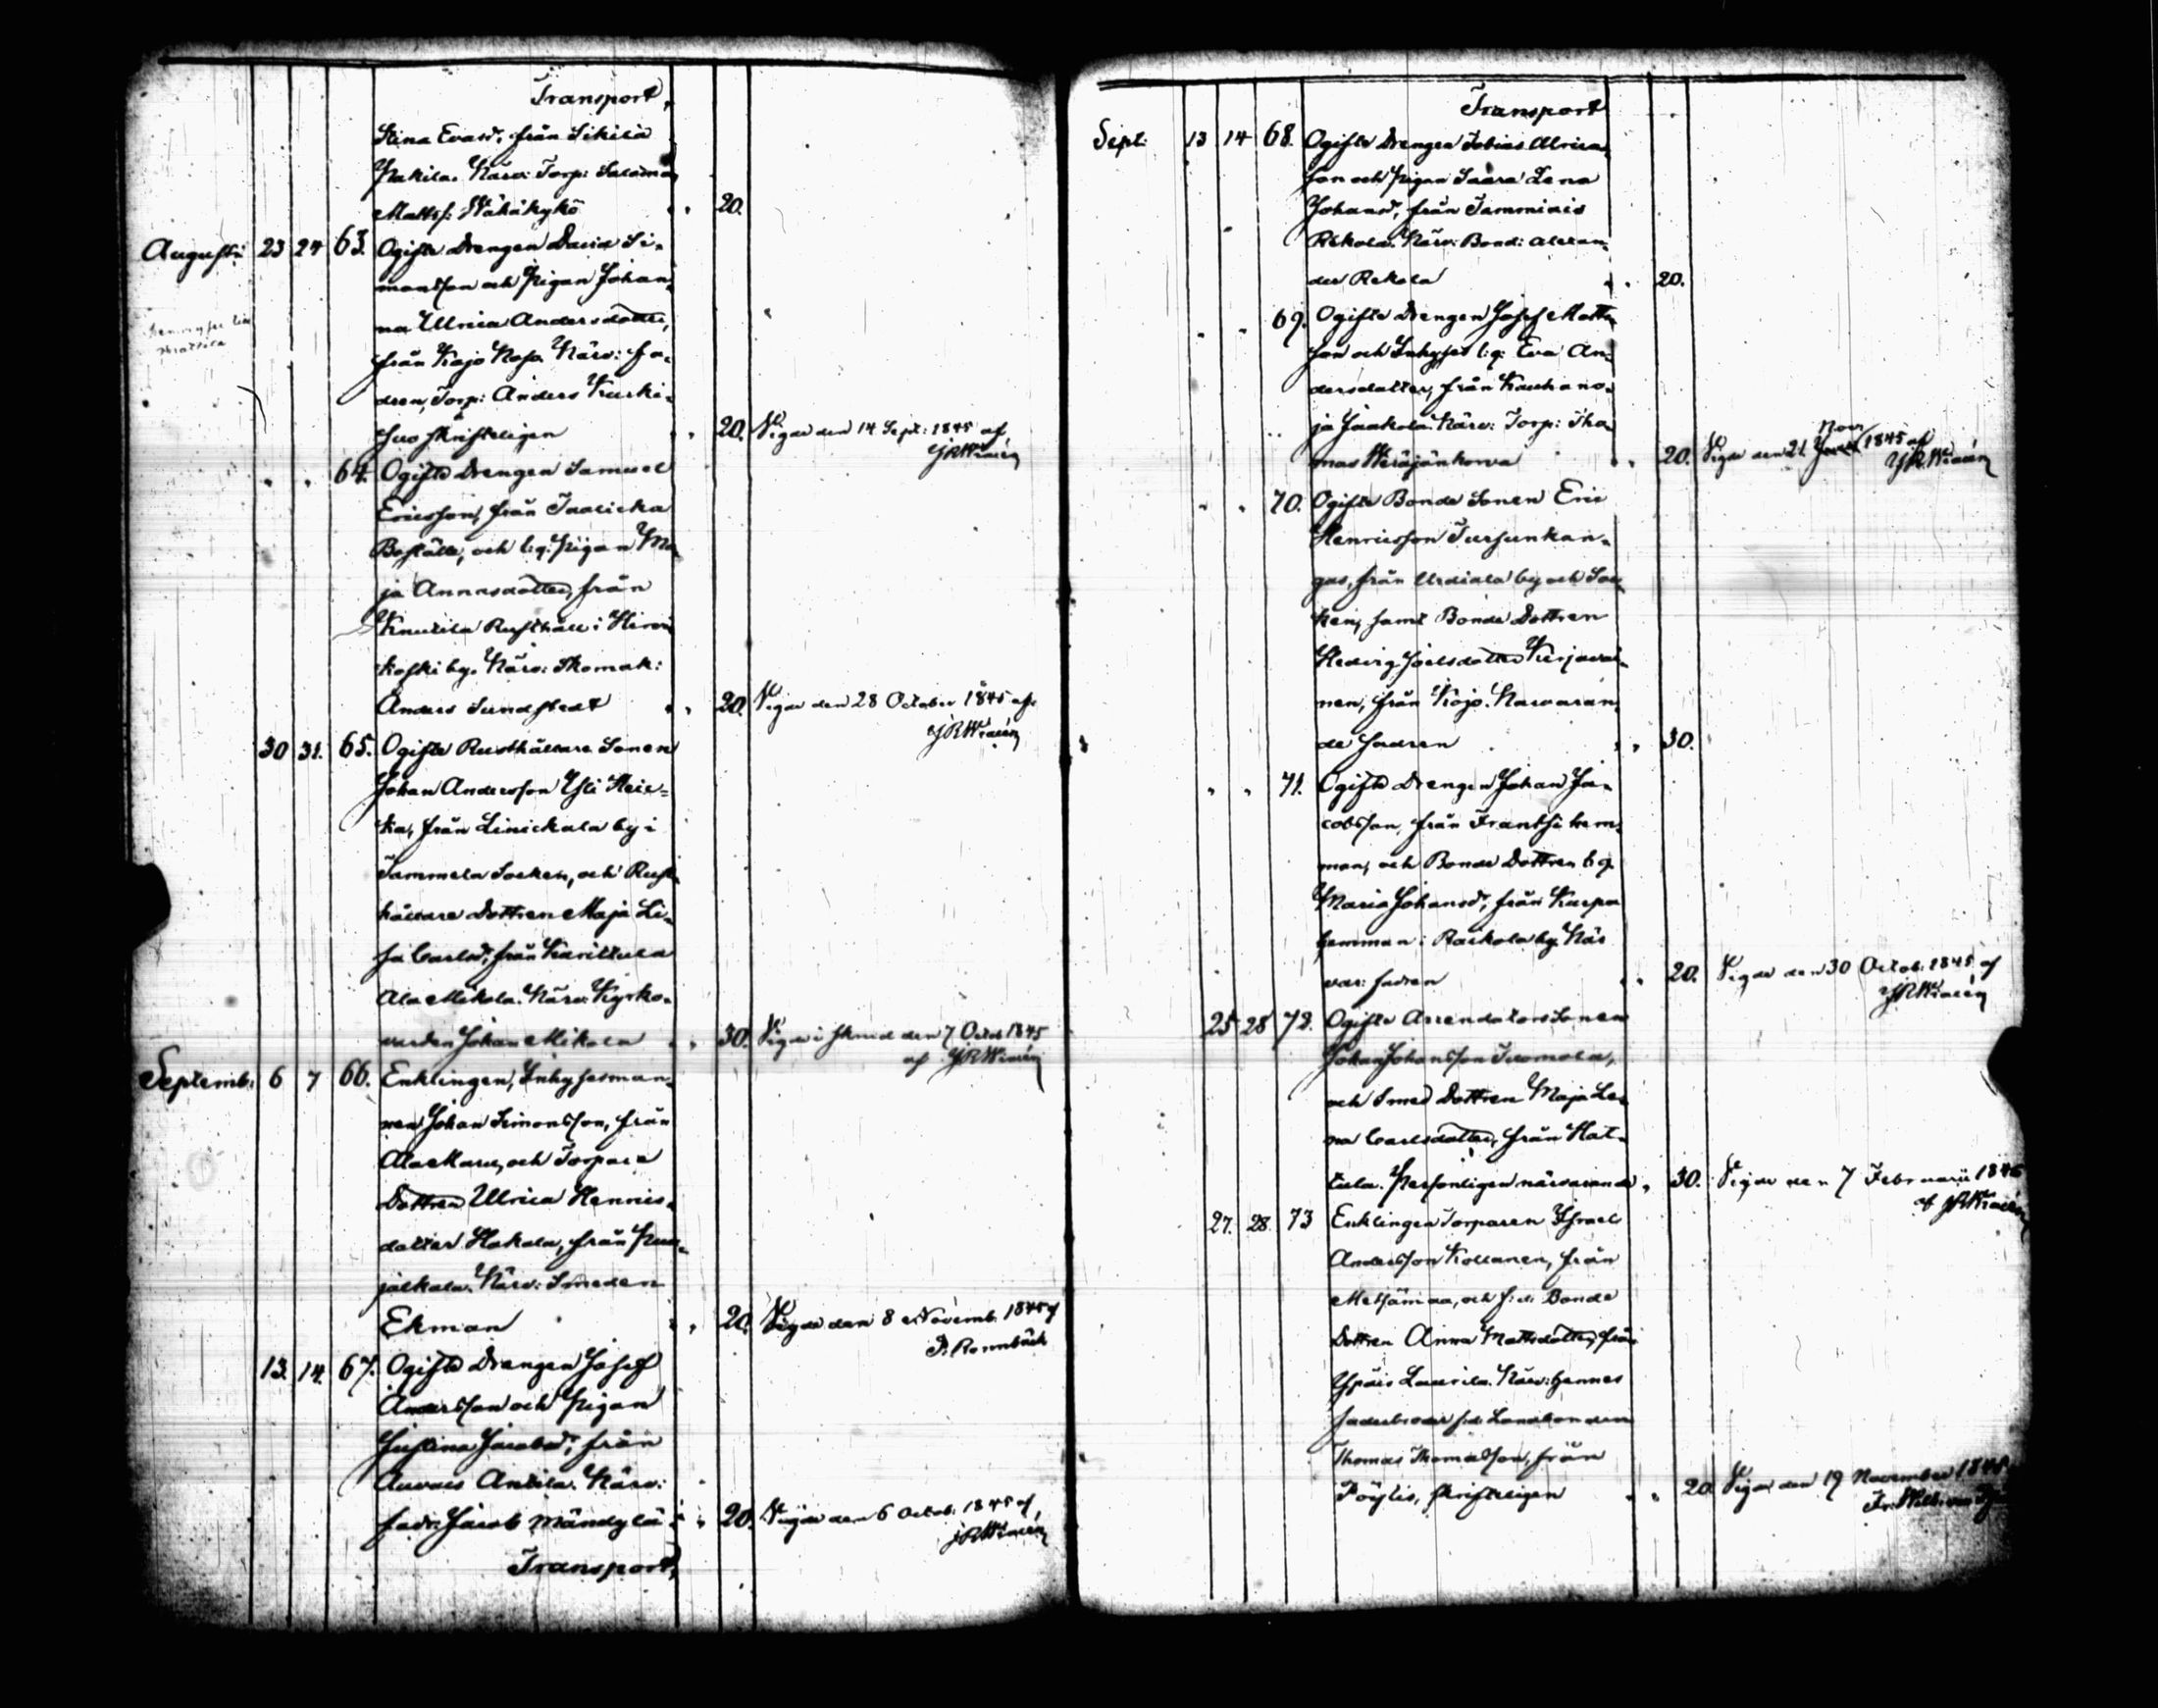 Transport,
Stina Evasd:r från Sikilä
Pakila. Närv: Torp: Salomon
Mattss: Wähäkykö " " 20.
Augusti 23 24 63. Ogifte Drengen David Si-
monsson och Pigan Johan-
na Ulrica Andersdotter,
från Kojo Nopo. Närv: fa-
dren, Torp: Anders Kurki-
suo skrifteligen " 20. Vigde den 14 Sept: 1845 af
JRWidén
" " 64. Ogifte Drengen Samuel
Ericsson, från
Boställe, och b:q: Pigan Ma-
ja Annasdotter, från
Knutila Rusthåll i Hirvi-
koski by. Närv: Skomak:
Anders Sundstedt " " 20. Vigde den 28 October 1845 af
JRWidén
30 31. 65. Ogifte Rusthållare Sonen
Johan Andersson Yli Heic-
ka, från Linickala by i
Tammela Socken, och Rust-
hållare Dottren Maja Li-
sa Carlsd:r, från
Ala Mikola. Närv: Kyrko-
värden Johan Mikola " " 30. Vigde i den 7 Octob 1845
af JRWidén
Septemb: 6 7 66. Enklingen, Inhysesman-
nen Johan Simonsson, från
och Torpare
Dottren Ulrica Henrics-
dotter Hakala, från
jälkala. Närv: Smeden
Ekman " " 20. Vigde den 8 Novemb. 1845 af
Rönnbäck
13. 14. 67. Ogifte Drengen Josef
Andersson och Pigan
Justina Jacobsd:r, från
Auvais Anttila. Närv:
fadr: Jacob Mändylä " " 20. Vigde den 6 Octob. 1845 af
JRWidén
Transport,
Transport
Sept: 13 14 68. Ogifte Drengen Tobias Ulrica-
son och Pigan Saara Lena
Johansd:r, från Tammiais
Rekola. Närv: Bond: Alexan-
der Rekola " " 20.
" " 69. Ogifte Drengen Josef Matts-
son och Inhyses b:q: Eva An-
dersdotter, från Kauhano-
ja Jaakola. Närv: Torp: Tho-
mas Weräjänkorva " " 20. Vigde den 21 Nov 1845 af
JRWidén
" " 70. Ogifte Bonde Sonen Eric
Henricsson Tursunkan-
gas, från Urdiala by och Soc-
ken, samt Bonde Dottren
Hedvig Joelsdotter Kirjavai-
nen, från Kojo. Närvaran-
de fadren " " 30.
" " 71. Ogifte Drengen Johan Ja-
cobsson, från Frantsi hem-
man, och Bonde Dottren b:q:
Maria Johansd:r, från Karpa
hemman i Raikola by. När
var: fadren " " 20. Vigde den 30 Octob. 1845 af
JRWidén
25 28 72. Ogifte Arrendators Sonen
Johan Johansson Tuomola,
och Smed Dottren Maja Le-
na Carlsdotter, från Hat-
tula. Personligen närvarande " 30. Vigde den 7 Februarii 1846
af JRWidén
27. 28. 73 Enklingen Torparen Israel
Andersson Kollanen, från
Metsämaa, och f:d: Bonde
Dottren Anna Mattsdotter, från
Ypäis Laurila. Närv: hennes
faderbroder f:d: Landbonden
Thomas Thomasson, från
Pöytis, skrifteligen " " 20. Vigde den 19 November 1845